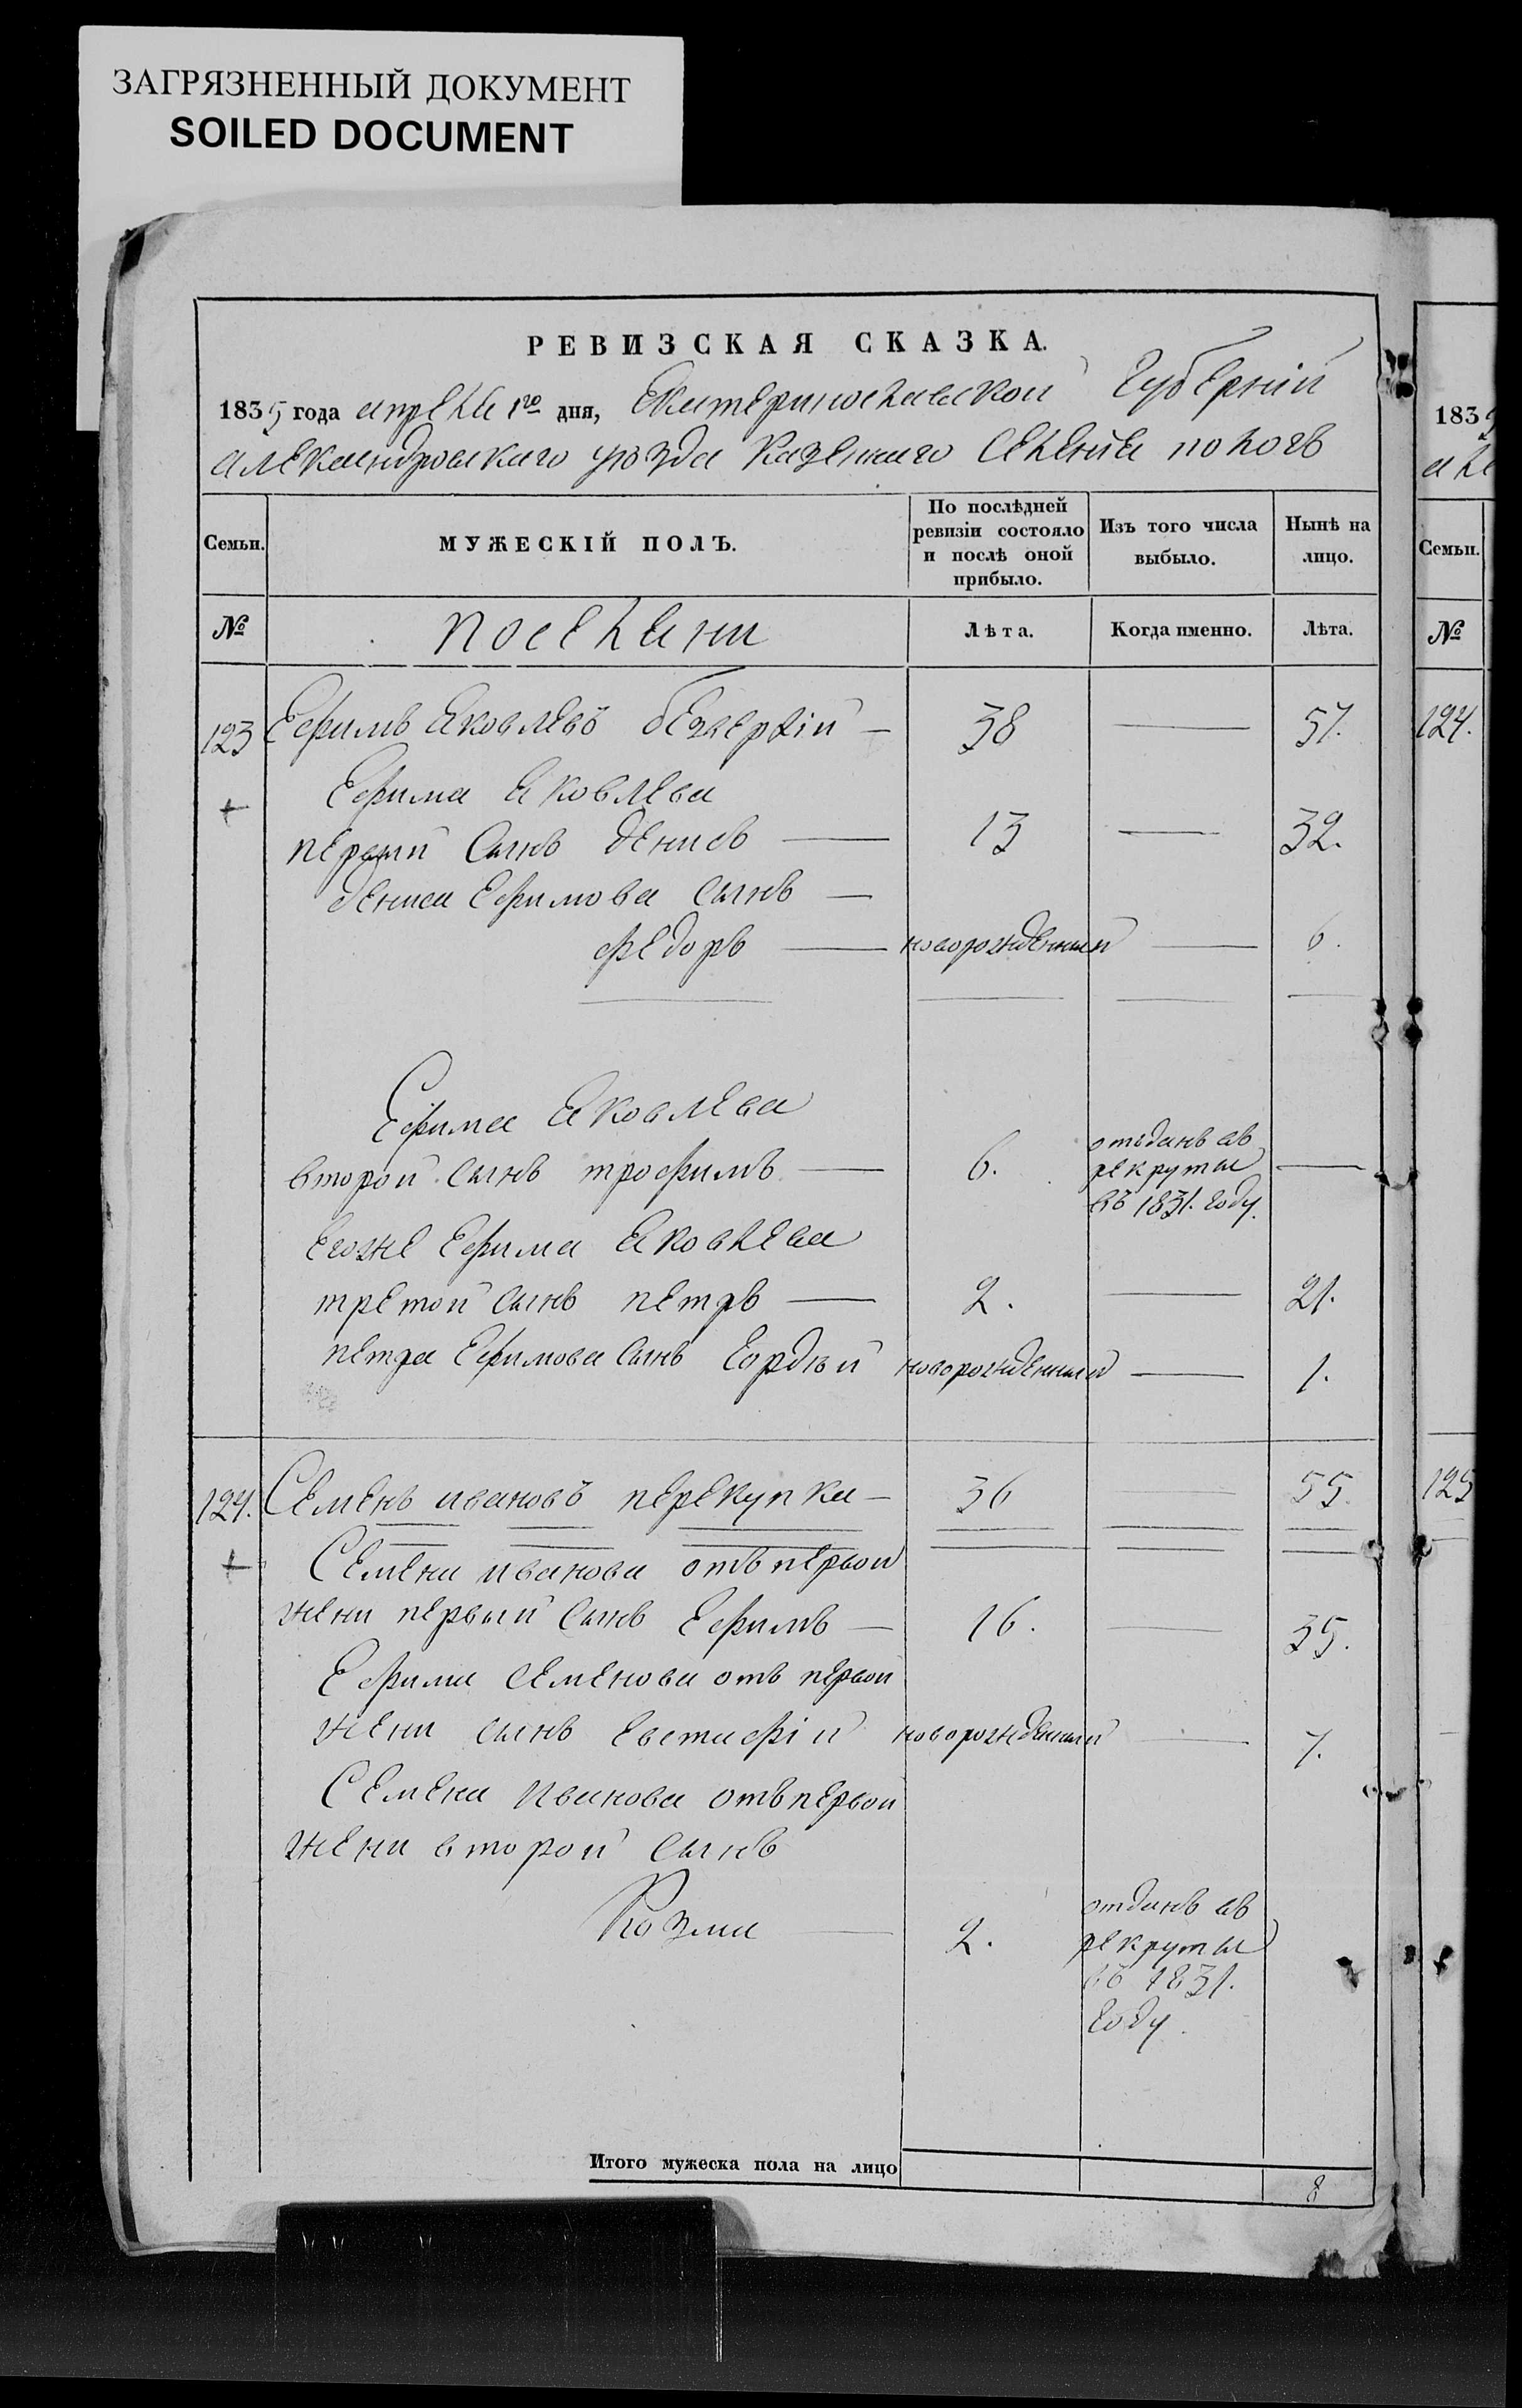 ЗАГРЯЗНЕННЫЙ ДОКУМЕНТ
SOILED DOCUMENT
РЕВИЗСКАЯ СКАЗКА.
1835 года апреля 1го дня, Екатеринославской Губерніи
александровскаго уѣзда Казеннаго Селенія пологъ
Семьи.
МУЖЕСКІЙ ПОЛЪ.
По послѣдней ревизіи состояло и послѣ оной прибыло.
Изъ того числа выбыло.
Нынѣ на лицо.
№
поселяни
Лѣта.
Когда именно.
Лѣта.
123 Ефимъ Яковлевъ безверхій — 38 — 57.
Ефима Яковлева
первий Сынъ денисъ — 13 — 32.
дениса Ефимова сынъ —
федоръ — новорожденный — 6.
Ефима Яковлева
второй сынъ трофимъ — 6. отъданъ въ рекруты въ 1831. году. —
Егоже Ефима Яковлева
третой сынъ петръ — 2. — 21.
петра Ефимова сынъ Гордѣй новорожденный — 1.
124. Семенъ ивановъ перекупка — 36 — 55.
Семена иванова отъ первой
жени первый сынъ Ефимъ — 16. — 35.
Ефима Семенова отъ первой
жени сынъ Евстафій новорожденный — 7.
Семена Иванова отъ первой
жени второй сынъ
Козма — 2. отданъ въ рекруты въ 1831. году.
Итого мужеска пола на лицо 8
183
Семьи.
№
124.
125